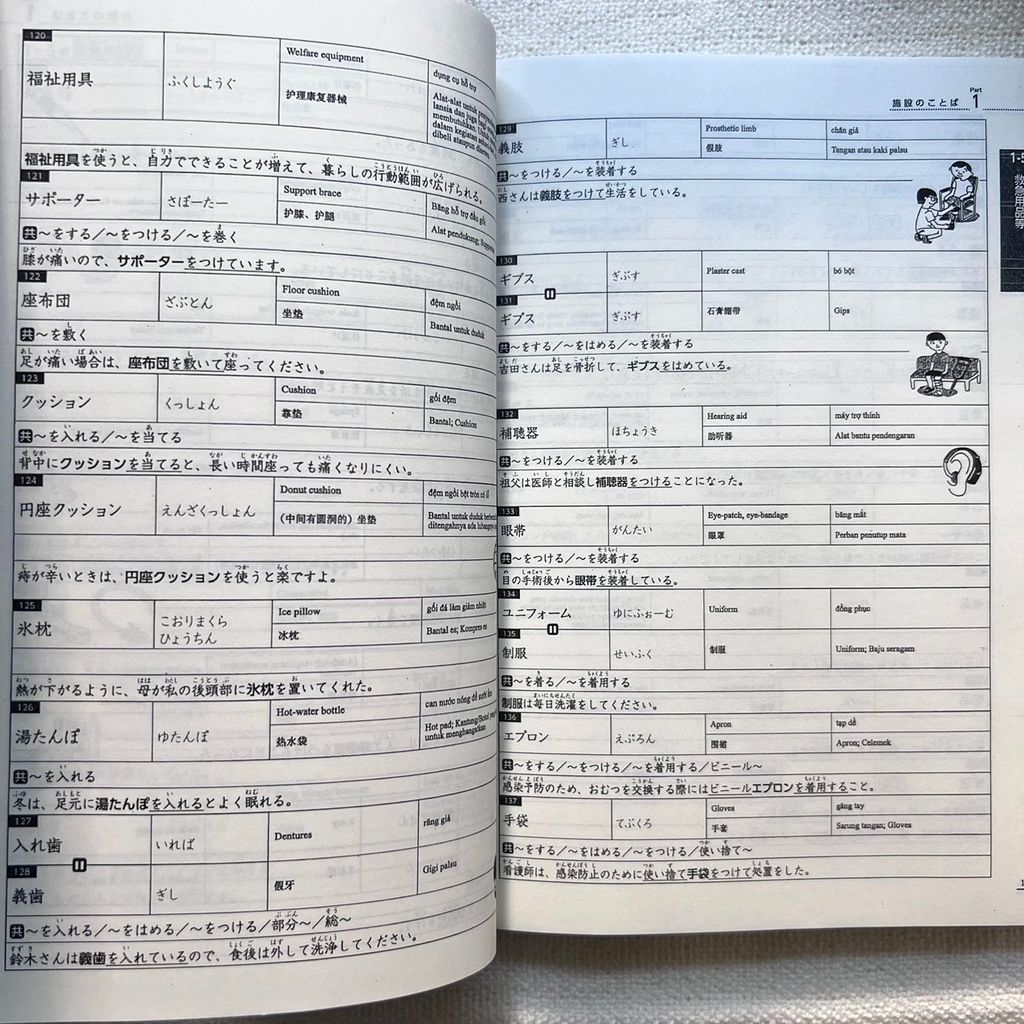 120
福祉用具 ふくしようぐ Welfare equipment dụng cụ hỗ trợ
护理康复器械 Alat-alat untuk
lansia dan juga bagi
membutuhkan.
dalam kegiatan
dibeli ataupun
福祉用具を使うと、自力でできることが増えて、暮らしの行動範囲が広げられる。
121
サポーター さぽーたー Support brace Băng hỗ trợ đầu gối
护膝、护腿 Alat pendukung;
共〜をする/〜をつける/〜を巻く
膝が痛いので、サポーターをつけています。
122
座布団 ざぶとん Floor cushion đệm ngồi
坐垫 Bantal untuk duduk
共〜を敷く
足が痛い場合は、座布団を敷いて座ってください。
123
クッション くっしょん Cushion gối đệm
靠垫 Bantal; Cushion
共〜を入れる/〜を当てる
背中にクッションを当てると、長い時間座っても痛くなりにくい。
124
円座クッション えんざくっしょん Donut cushion đệm ngồi bệt tròn có lỗ
(中间有圆洞的)坐垫 Bantal untuk duduk
ditengahnya ada
痔が辛いときは、円座クッションを使うと楽ですよ。
125
氷枕 こおりまくら ひょうちん Ice pillow gối đá làm giảm nhiệt
冰枕 Bantal es; Kompres es
熱が下がるように、母が私の後頭部に氷枕を置いてくれた。
126
湯たんぽ ゆたんぽ Hot-water bottle can nước nóng để sưởi ấm
热水袋 Hot pad;
untuk menghangatkan
共〜を入れる
冬は、足元に湯たんぽを入れるとよく眠れる。
127
入れ歯 いれば Dentures răng giả
128
義歯 ぎし 假牙 Gigi palsu
共〜を入れる/〜をはめる/〜をつける/部分〜/総〜
鈴木さんは義歯を入れているので、食後は外して洗浄してください。
施設のことば Part 1
129
義肢 ぎし Prosthetic limb chân giả
假肢 Tangan atau kaki palsu
共〜をつける/〜を装着する
西さんは義肢をつけて生活をしている。
130
ギプス ぎぷす Plaster cast bó bột
131
ギブス ぎぶす 石膏绷带 Gips
共〜をする/〜をはめる/〜を装着する
吉田さんは足を骨折して、ギプスをはめている。
132
補聴器 ほちょうき Hearing aid máy trợ thính
助听器 Alat bantu pendengaran
共〜をつける/〜を装着する
祖父は医師と相談し補聴器をつけることになった。
133
眼帯 がんたい Eye-patch, eye-bandage băng mắt
眼罩 Perban penutup mata
共〜をつける/〜を装着する
目の手術後から眼帯を装着している。
134
ユニフォーム ゆにふぉーむ Uniform đồng phục
135
制服 せいふく 制服 Uniform; Baju seragam
共〜を着る/〜を着用する
制服は毎日洗濯をしてください。
136
エプロン えぷろん Apron tạp dề
围裙 Apron; Celemek
共〜をする/〜をつける/〜を着用する/ビニール〜
感染予防のため、おむつを交換する際にはビニールエプロンを着用すること。
137
手袋 てぶくろ Gloves găng tay
手套 Sarung tangan; Gloves
共〜をする/〜をはめる/〜をつける/使い捨て〜
看護師は、感染防止のために使い捨て手袋をつけて処置をした。
救急用品等